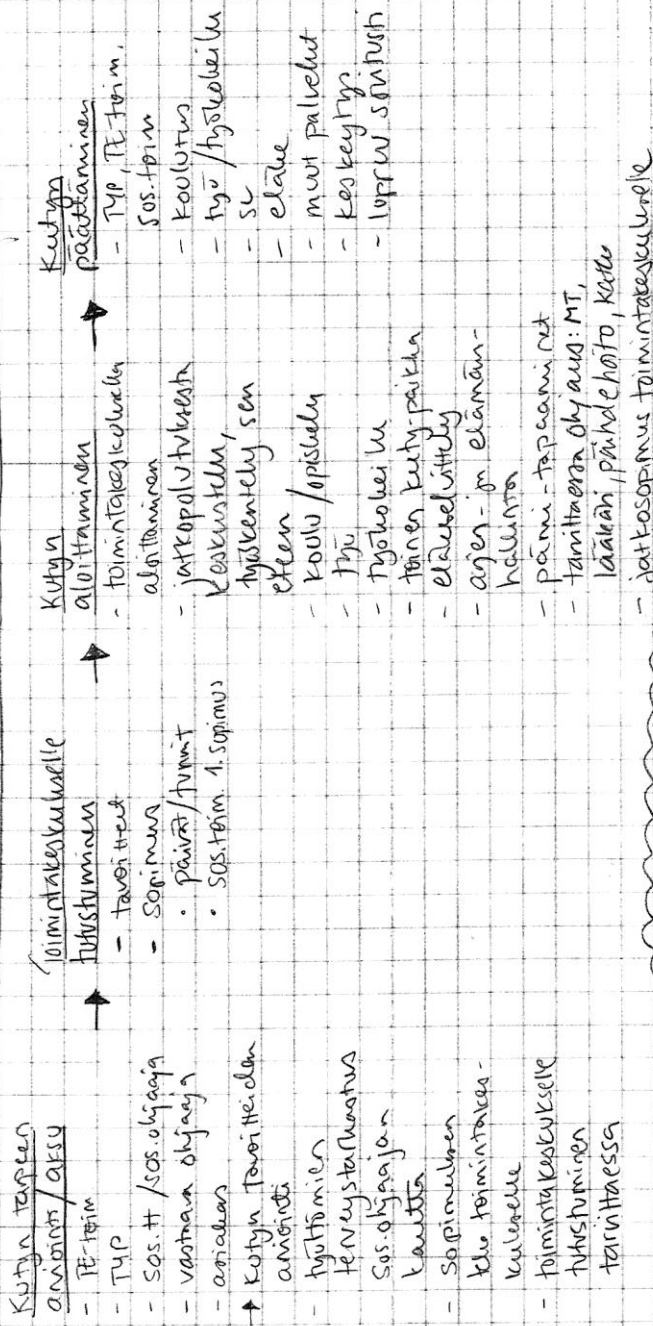 Kutyn tarpeen
arviointi / aksu
- TE-toim
- TYP
- Sos.tt / sos.ohjaaja
- vastaava ohjaaja
- asiakas
→ Kutyn tavoitteiden
arviointi
- työttömien
terveystarkastus
sos.ohjaajan
kautta
- sopimuksen
teko toimintakes-
kukselle
- toimintakeskukselle
tutustuminen
tarvittaessa
→
Toimintakeskukselle
tutustuminen
- tavoitteet
- Sopimus
• päivät/tunnit
• sos.toim. 1. sopimus
→
Kutyn
aloittaminen
- toimintakeskuksella
aloittaminen
- jatkopolutuksesta
keskustelu,
työskentely sen
eteen
- koulu / opiskelu
- työ
- työkokeilu
- toinen kuty-paikka
- eläkeselvittely
- arjen- ja elämän-
hallinta
- pärmi-tapaamiset
- tarvittaessa ohjaus: MT,
lääkäri, päihdehoito, katko
- jatkosopimus toimintakeskukselle
→
Kutyn
päättäminen
- TYP, TE-toim,
sos.toim
- koulutus
- työ / työkokeilu
- sl
- eläke
- muut palvelut
- keskeytys
- loppuu sovitusti